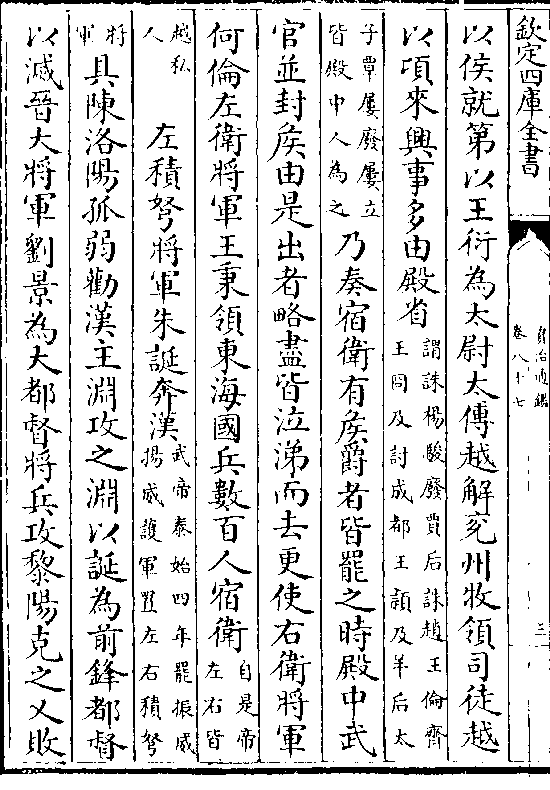 欽定四庫全書
資治通鑑
卷八十七
三
以侯就第以王衍為太尉太傅越解兗州牧領司徒越
以頃來興事多由殿省謂誅楊駿廢賈后誅趙王倫齊王冏及討成都王穎及羊后太
子覃屢廢屢立皆殿中人為之乃奏宿衛有侯爵者皆罷之時殿中武
官並封侯由是出者略盡皆泣涕而去更使右衛將軍
何倫左衛將軍王秉領東海國兵數百人宿衛自是帝左右皆
越私人左積弩將軍朱誕奔漢武帝泰始四年罷振威揚威護軍置左右積弩
將軍具陳洛陽孤弱勸漢主淵攻之淵以誕為前鋒都督
以滅晉大將軍劉景為大都督將兵攻黎陽克之又敗